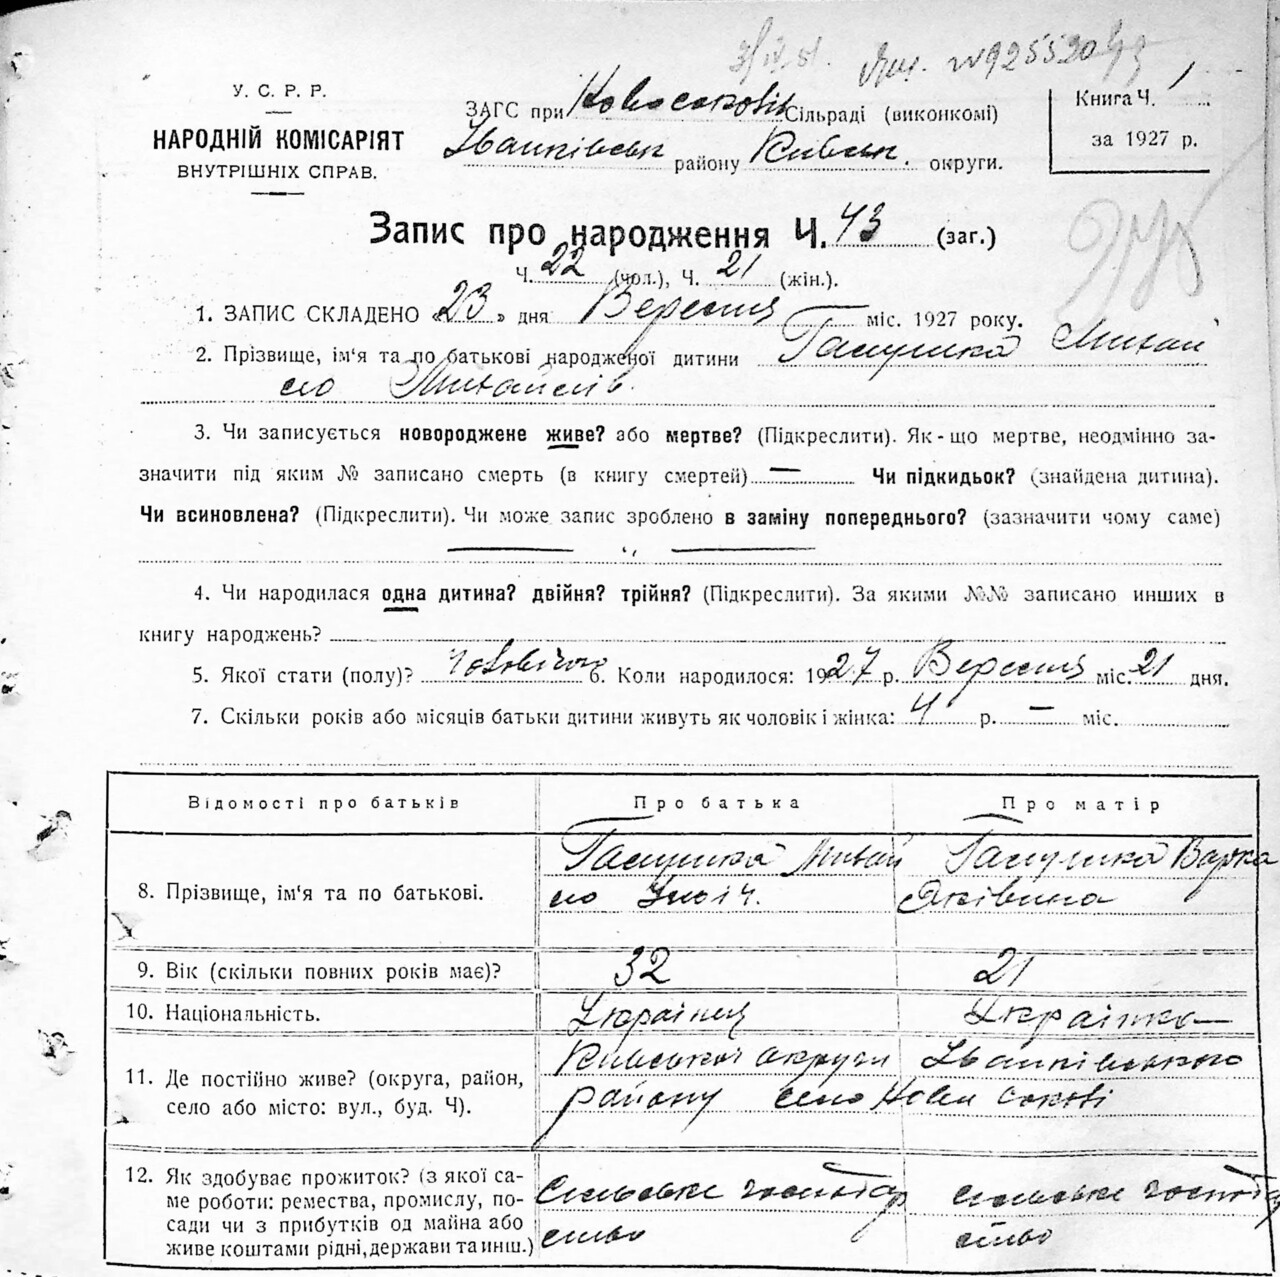 У. С. Р. Р.
НАРОДНІЙ КОМІСАРІЯТ
ВНУТРІШНІХ СПРАВ.
ЗАГС при Новосоковів Сільраді (виконкомі)
Іванківськ району Київськ. округи.
Книга Ч. 1
за 1927 р.
Запис про народження Ч. 43 (заг.)
Ч. 22 (чол.), Ч. 21 (жін.).
1. ЗАПИС СКЛАДЕНО «23» дня Вересня міс. 1927 року.
2. Прізвище, ім'я та по батькові народженої дитини Галушка Михай
ло Михайлів.
3. Чи записується новороджене живе? або мертве? (Підкреслити). Як-що мертве, неодмінно за-
значити під яким № записано смерть (в книгу смертей) — Чи підкидьок? (знайдена дитина).
Чи всиновлена? (Підкреслити). Чи може запис зроблено в заміну попереднього? (зазначити чому саме)
4. Чи народилася одна дитина? двійня? трійня? (Підкреслити). За якими №№ записано инших в
книгу народжень?
5. Якої стати (полу)? Чоловічої 6. Коли народилося: 1927 р. Вересня міс. 21 дня.
7. Скільки років або місяців батьки дитини живуть як чоловік і жінка: 4 р. — міс.
Відомості про батьків Про батька Про матір
8. Прізвище, ім'я та по батькові. Галушка Михай Галушка Варка
ло Ільіч. Яківина
9. Вік (скільки повних років має)? 32 21
10. Національність. Українец Українка
11. Де постійно живе? (округа, район, Київської округи Іванківського
село або місто: вул., буд. Ч). району село Нові Сокові
12. Як здобуває прожиток? (з якої са-
ме роботи: ремества, промислу, по-
сади чи з прибутків од майна або
живе коштами рідні, держави та инш.)
сільське господар
ство
сільське господа
рство